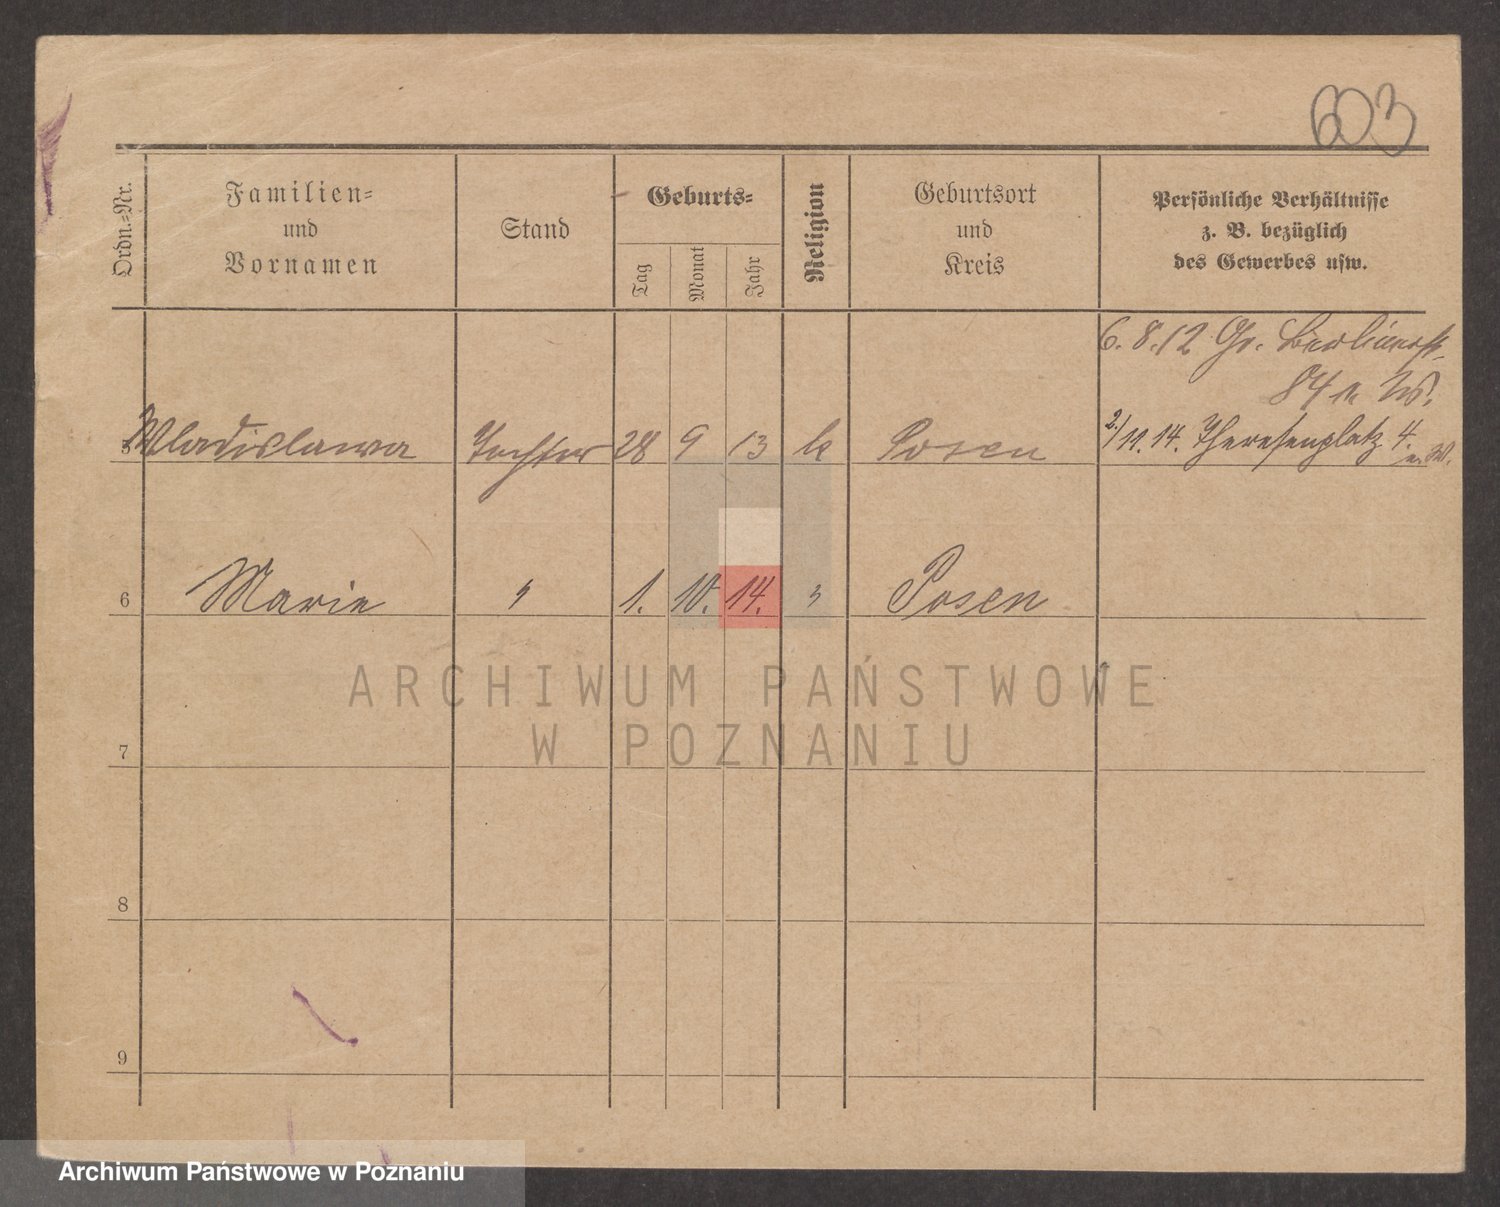 603
Ordn.=Nr.
Familien=
und
Vornamen
Stand
Geburts=
Tag
Monat
Jahr
Religion
Geburtsort
und
Kreis
Persönliche Verhältnisse
z. B. bezüglich
des Gewerbes usw.
6. 8. 12 Gr. Berlinerst.
84 n. W.
5 Wladislawa Tochter 28 9 13 k Posen 2/11. 14. Theresenplatz 4. n. W.
6 Marie " 1. 10. 14. " Posen
7
8
9
ARCHIWUM PAŃSTWOWE
W POZNANIU
Archiwum Państwowe w Poznaniu